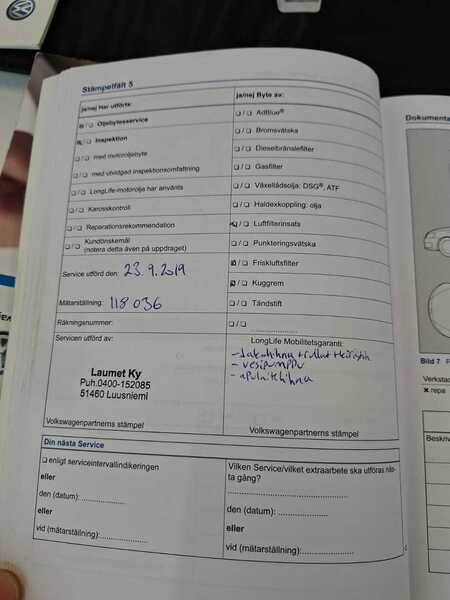 Stämpelfält 5
ja/nej Har utförts:
☒/❑ Oljebytesservice
☒/❑ Inspektion
❑/❑ med motoroljebyte
❑/❑ med utvidgad inspektionsomfattning
❑/❑ LongLife-motorolja har använts
❑/❑ Karosskontroll
❑/❑ Reparationsrekommendation
❑/❑ Kundönskemål
(notera detta även på uppdraget)
Service utförd den: 23.9.2019
Mätarställning: 118 036
Räkningsnummer:
Servicen utförd av:
Laumet Ky
Puh.0400-152085
51460 Luusniemi
Volkswagenpartnerns stämpel
ja/nej Byte av:
❑/❑ AdBlue®
❑/❑ Bromsvätska
❑/❑ Dieselbränslefilter
❑/❑ Gasfilter
❑/❑ Växellådsolja: DSG®, ATF
❑/❑ Haldexkoppling: olja
☒/❑ Luftfilterinsats
❑/❑ Punkteringsvätska
☒/❑ Friskluftsfilter
☒/❑ Kuggrem
❑/❑ Tändstift
❑/❑ ....................
LongLife Mobilitetsgaranti:
- Jakohihna + rullat + kiristin
- vesipumppu
- apulaitehihna
Volkswagenpartnerns stämpel
Din nästa Service
❑ enligt serviceintervallindikeringen
eller
den (datum): ....................
eller
vid (mätarställning): ....................
Vilken Service/vilket extraarbete ska utföras näs-
ta gång?
........................................
den (datum): ....................
eller
vid (mätarställning): ....................
Dokumenta
Bild 7
Verksta
✖ repa
Beskriv